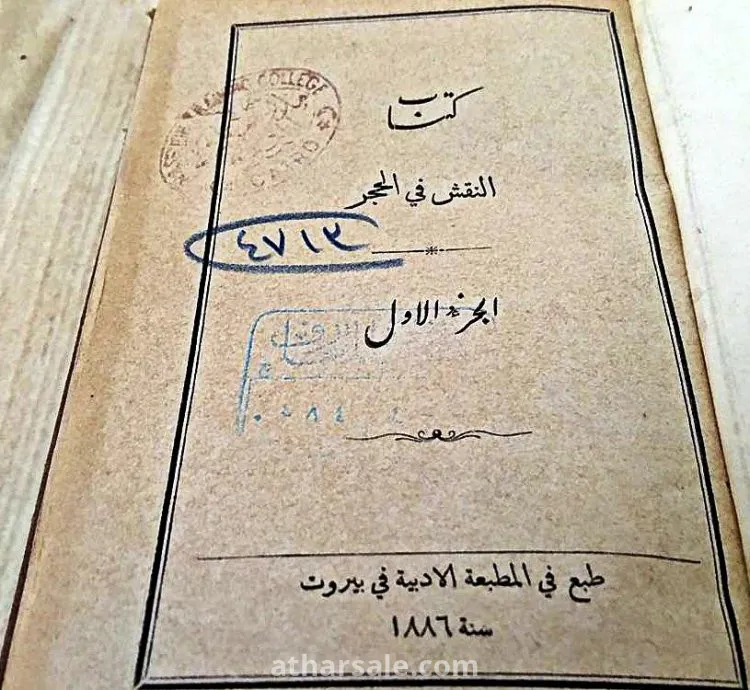 COLLEGE
CAIRO
كتاب
النقش في الحجر
٤٧١٣
الجزء الاول
طبع في المطبعة الادبية في بيروت
سنة ١٨٨٦
atharsale.com